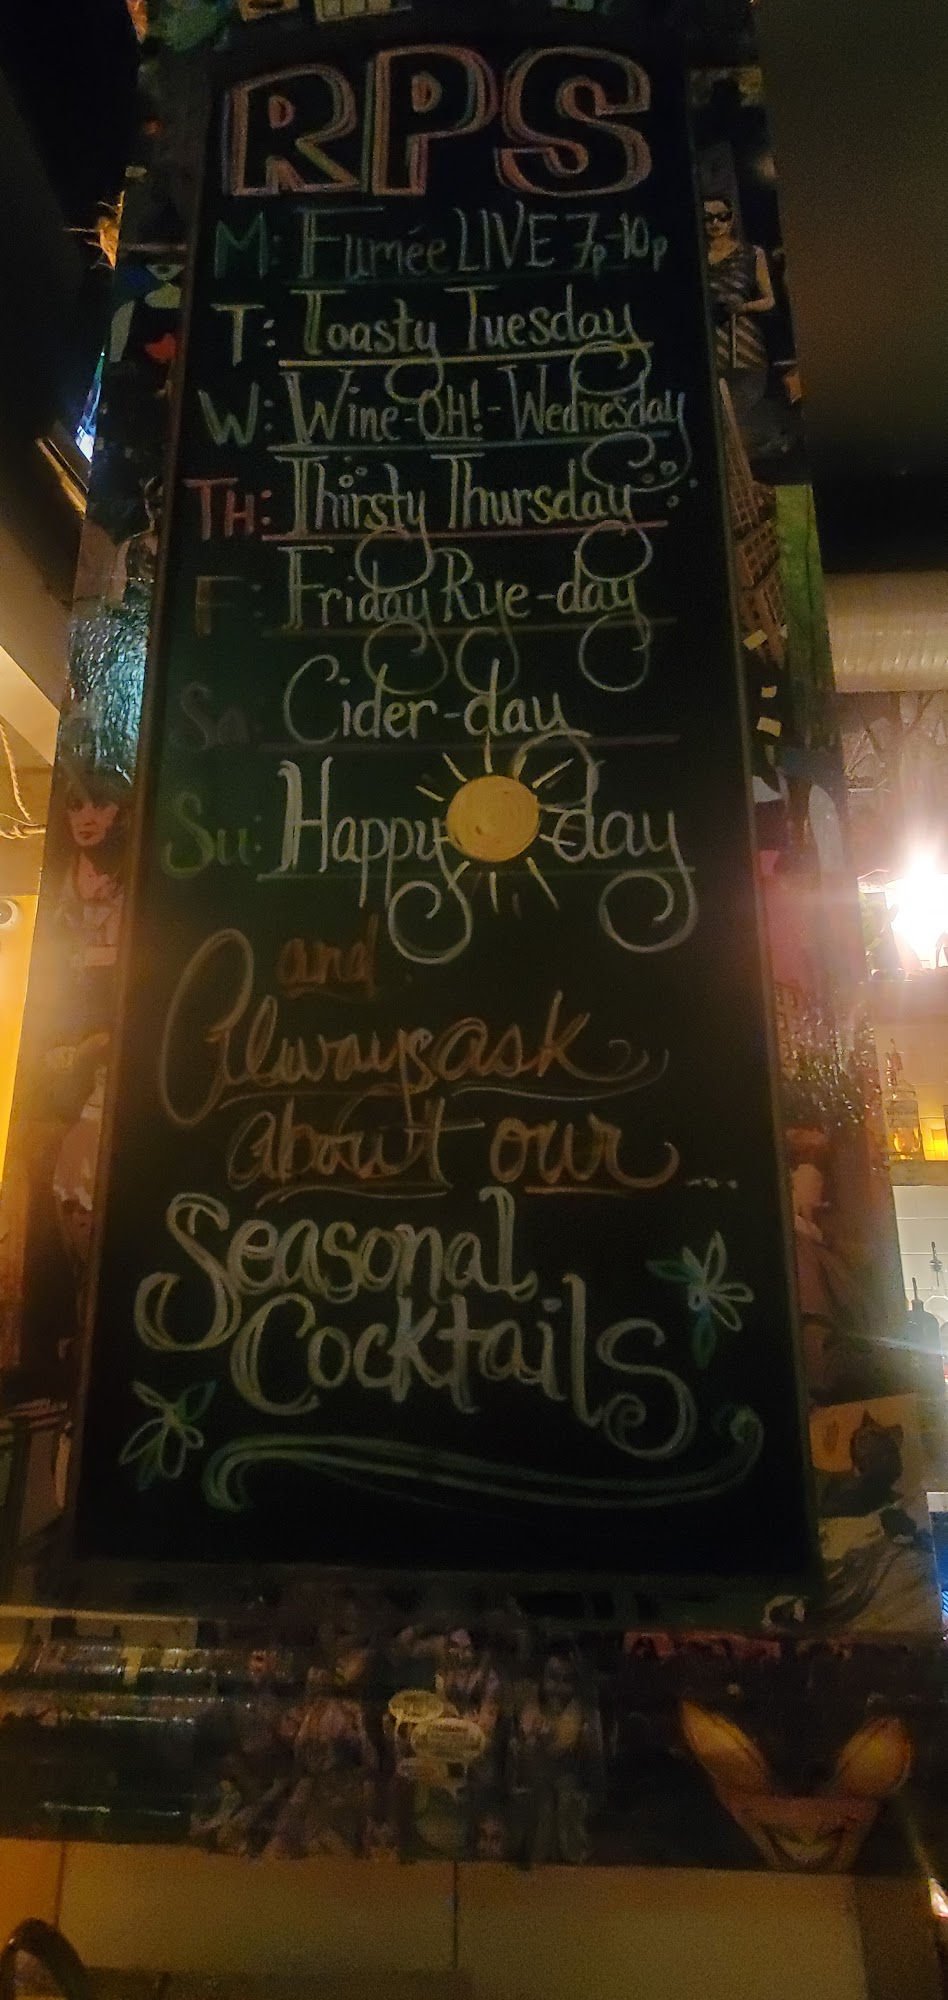 RPS
M: Fumée LIVE 7p-10p
T: Toasty Tuesday
W: Wine-OH!-Wednesday
TH: Thirsty Thursday
F: Friday Rye-day
Sa: Cider-day
Su: Happy day
and
Always ask
about our...
Seasonal
Cocktails